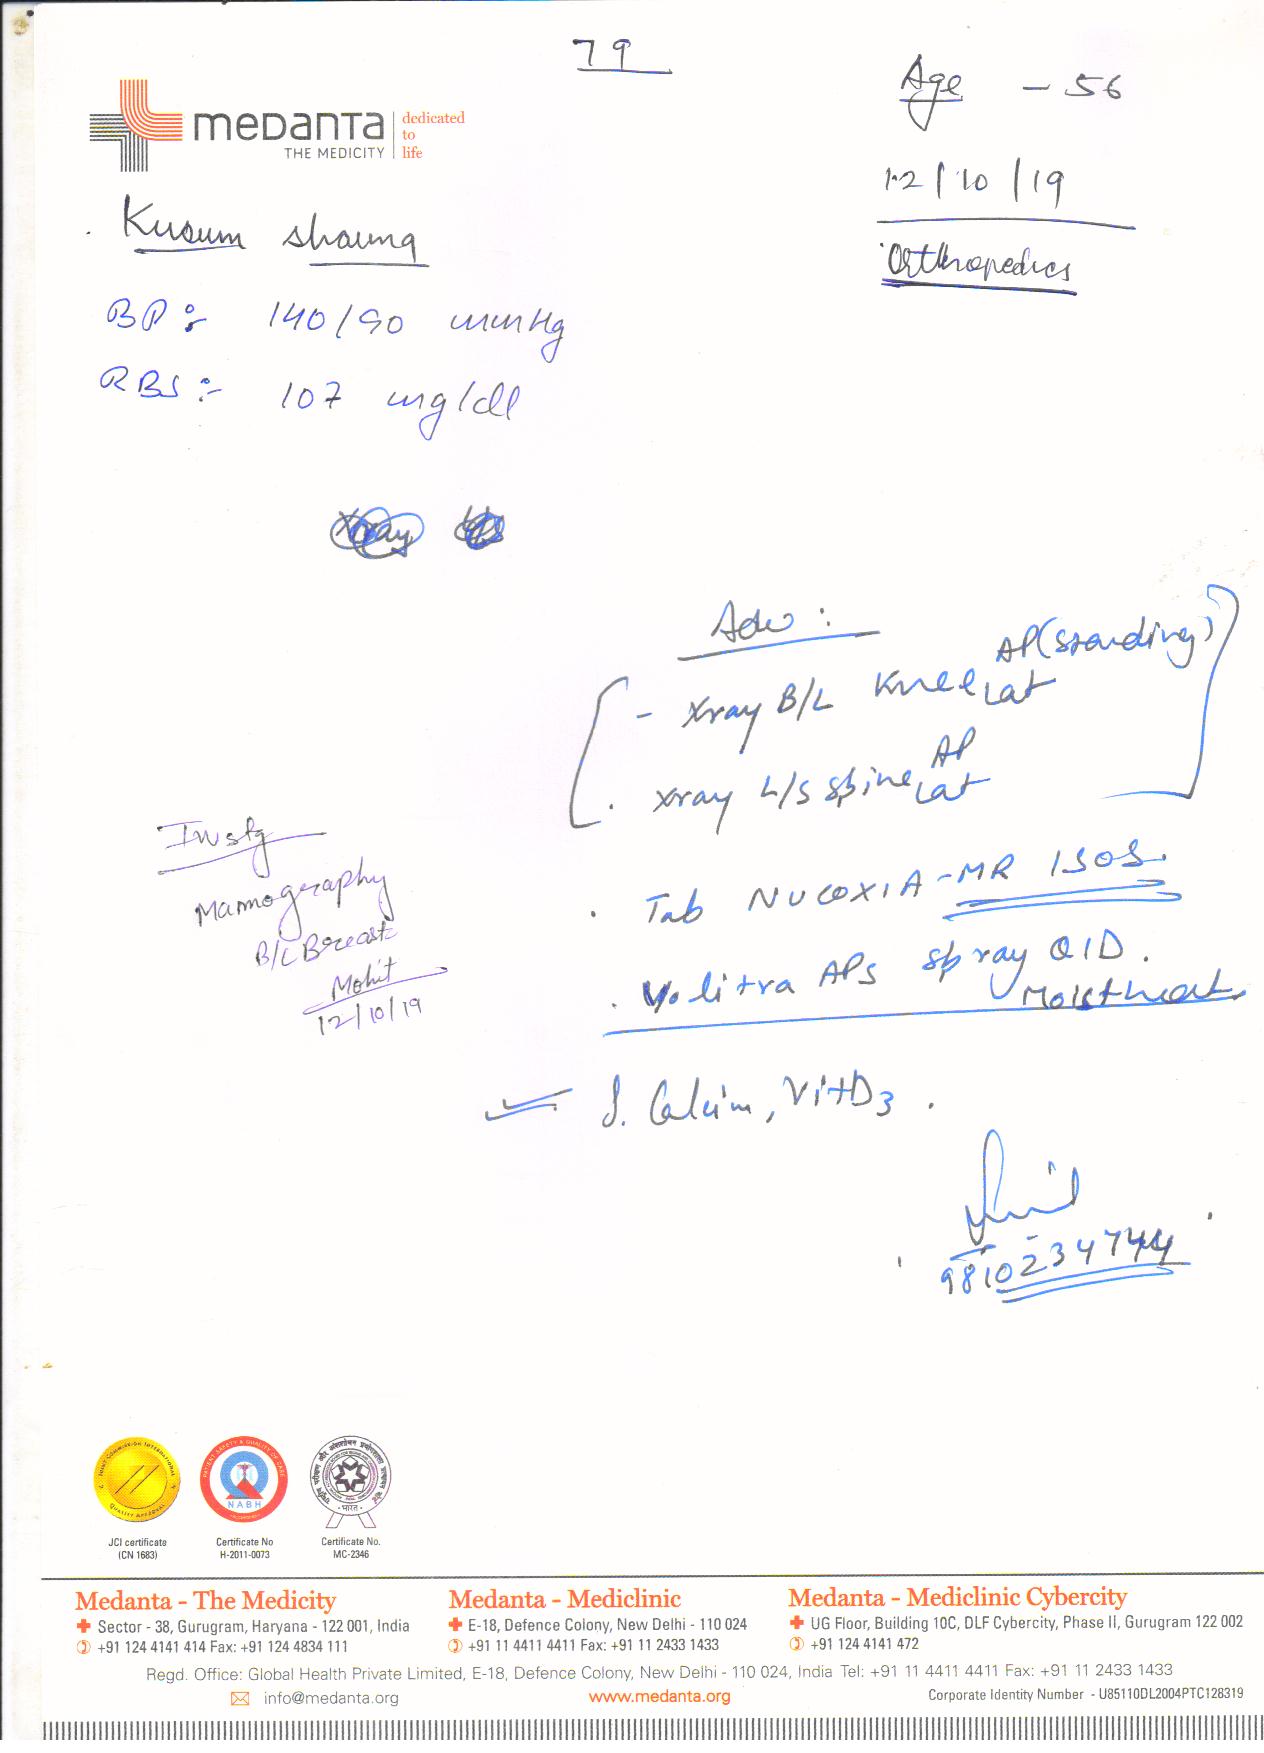 79
Age - 56
medanta
THE MEDICITY
dedicated
to
life
12/10/19
Kusum sharma
Orthopedics
BP:- 140/90 mmHg
RBS:- 107 mg/dl
Xray
Adv:
AP(standing)
- Xray B/L Knee Lat
AP
. Xray L/S spine Lat
Invstg
Mamography
B/L Breast
Mohit
12/10/19
. Tab NUCOXIA-MR 1SOS.
. Volitra APS spray QID.
Moist heat
S. Calcium, VitD3.
9810234744
JOINT COMMISSION INTERNATIONAL
QUALITY APPROVAL
PATIENT SAFETY & QUALITY OF CARE
NABH
भारत
JCI certificate
(CN 1683)
Certificate No
H-2011-0073
Certificate No.
MC-2346
Medanta - The Medicity
Sector - 38, Gurugram, Haryana - 122 001, India
+91 124 4141 414 Fax: +91 124 4834 111
Medanta - Mediclinic
E-18, Defence Colony, New Delhi - 110 024
+91 11 4411 4411 Fax: +91 11 2433 1433
Medanta - Mediclinic Cybercity
UG Floor, Building 10C, DLF Cybercity, Phase II, Gurugram 122 002
+91 124 4141 472
Regd. Office: Global Health Private Limited, E-18, Defence Colony, New Delhi - 110 024, India Tel: +91 11 4411 4411 Fax: +91 11 2433 1433
info@medanta.org
www.medanta.org
Corporate Identity Number - U85110DL2004PTC128319